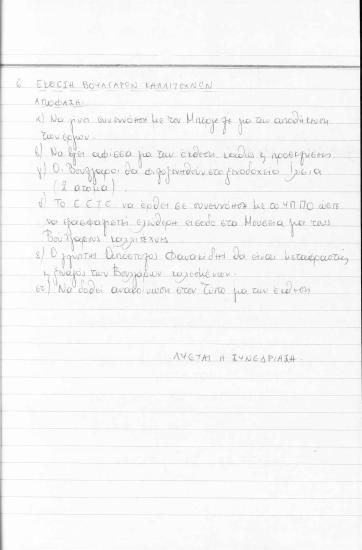 6. ΕΚΘΕΣΗ ΒΟΥΛΓΑΡΩΝ ΚΑΛΛΙΤΕΧΝΩΝ
ΑΠΟΦΑΣΗ:
α) Να γίνει συνεννόηση με τον για την αποθήκευση
των έργων.
β) Να βγει αφίσσα για την έκθεση καθώς η προσκλήσεις
γ) Οι Βούλγαροι θα φιλοξενηθούν στο ξενοδοχείο Ιλίσια
(2 άτομα)
δ) Το Ε.Ε.Τ.Ε. να έρθει σε συνεννόηση με το ΥΠΠΟ ώστε
να εξασφαλιστεί ελεύθερη είσοδο στα Μουσεία για τους
Βούλγαρους καλλιτέχνες
ε) Ο γλύπτης Απόστολος Φανακίδης θα είναι μεταφραστής
η ξεναγός των Βουλγάρων καλεσμένων.
στ) Να δοθεί ανακοίνωση στον Τύπο για την έκθεση
ΛΥΕΤΑΙ Η ΣΥΝΕΔΡΙΑΣΗ